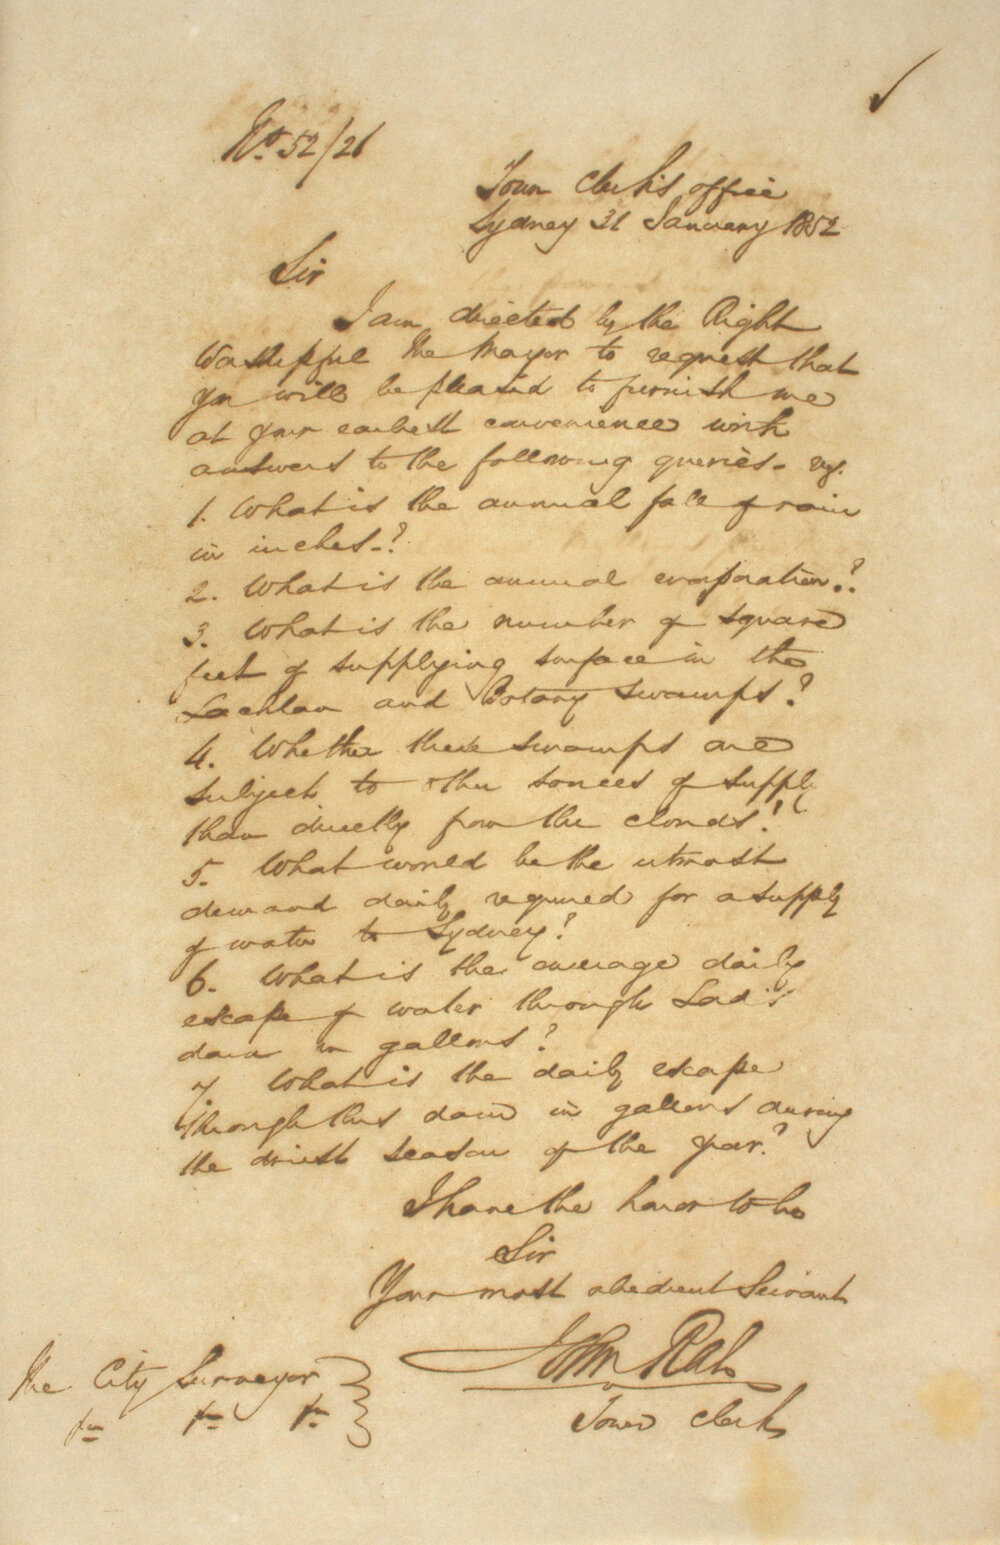 No. 52/21
Town Clerk's office
Sydney 31 January 1852
Sir
I am directed by the Right
Worshipful the Mayor to request that
you will be pleased to furnish me
at your earliest convenience with
answers to the following queries - viz.
1. What is the annual fall of rain
in inches - ?
2. What is the annual evaporation ?
3. What is the number of square
feet of supplying surface in the
Lachlan and Botany Swamps ?
4. Whether these swamps are
subject to other sources of supply
than directly from the clouds ?
5. What would be the utmost
demand daily required for a supply
of water to Sydney ?
6. What is the average daily
escape of water through Lord's
dam in gallons ?
7. What is the daily escape
through this dam in gallons during
the driest season of the year ?
I have the honor to be
Sir
Your most obedient Servant
John
Town Clerk
The City Surveyor